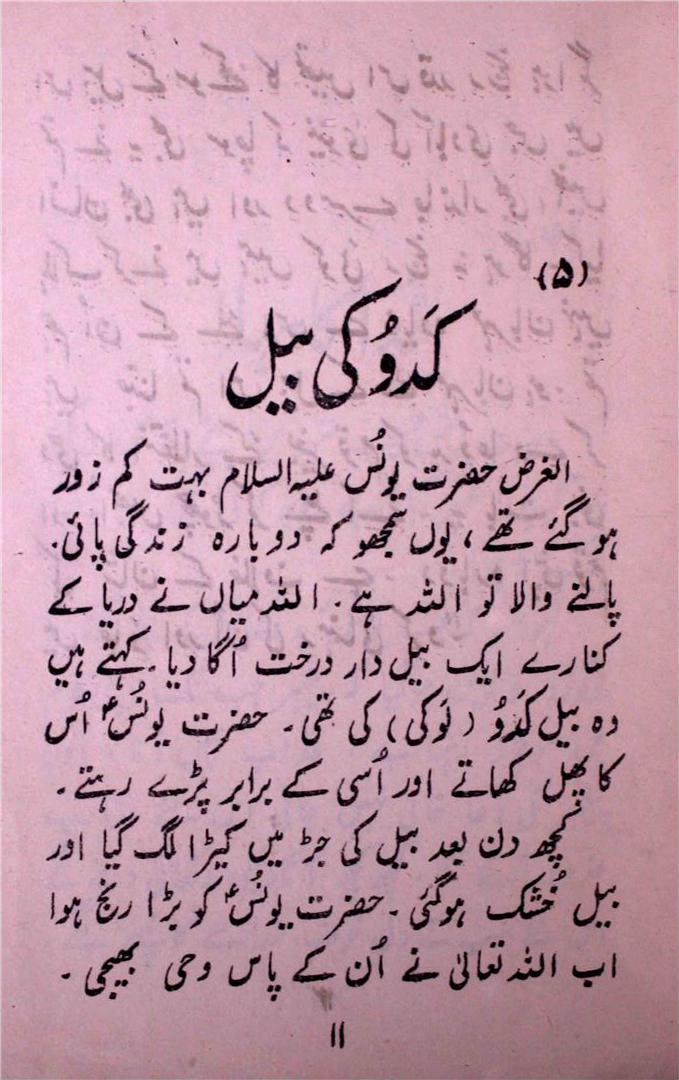 (۵)
کَدُو کی بیل
الغرض حضرت یونُس علیہ السلام بہت کم زور
ہو گئے تھے، یوں سمجھو کہ دوبارہ زندگی پائی.
پالنے والا تو اللہ ہے۔ اللہ میاں نے دریا کے
کنارے ایک بیل دار درخت اُگا دیا۔ کہتے ہیں
وہ بیل کَدُو (لَوکی) کی تھی۔ حضرت یونُسؑ اُس
کا پھل کھاتے اور اُسی کے برابر پڑے رہتے۔
کچھ دن بعد بیل کی جڑ میں کیڑا لگ گیا اور
بیل خُشک ہو گئی۔ حضرت یونُسؑ کو بڑا رنج ہوا
اب اللہ تعالیٰ نے اُن کے پاس وحی بھیجی۔
۱۱